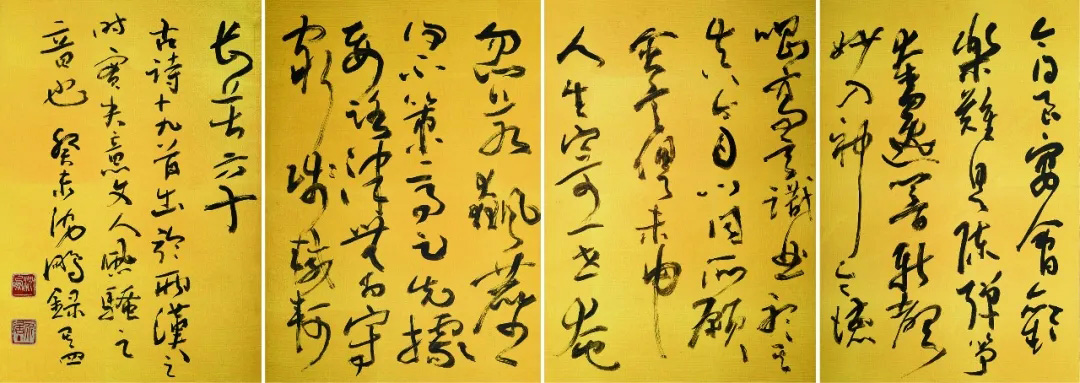 今日良宴會歡
樂難具陳彈箏
奮逸響新聲
妙入神令德
唱高言識曲聽其
真齊心同所願
含意俱未申
人生寄一世奄
忽若飆塵
何不策高足先據
要路津無為守
窮賤轗軻
長苦辛
古詩十九首出於兩漢之
時實失意文人風騷之
音也 癸未沈鵬錄其四